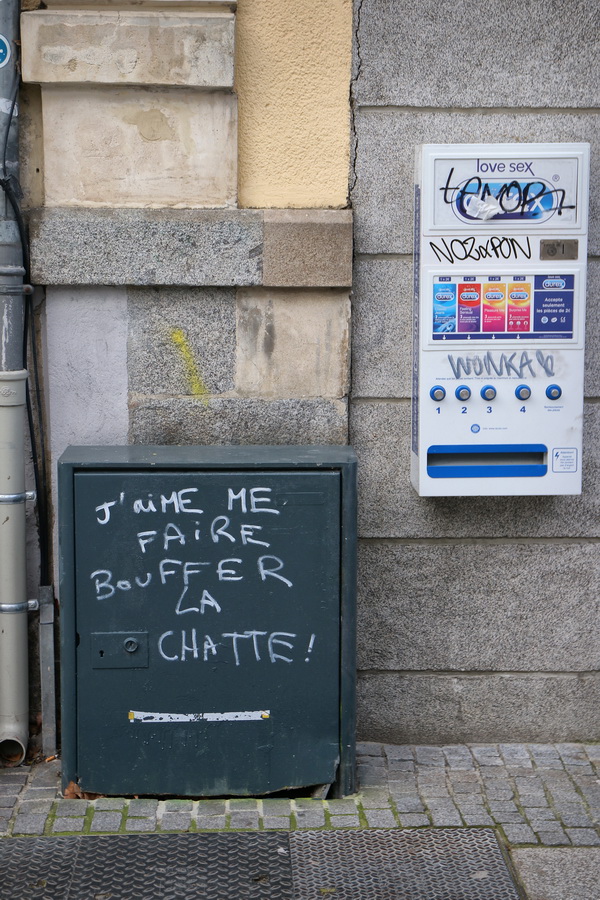 love sex
NOZαPON
durex
durex
durex
durex
durex
Accepte
seulement
les pièces de 2€
WONKA
1 2 3 4
J'AiME ME
FAiRE
BOUFFER
LA
CHATTE!